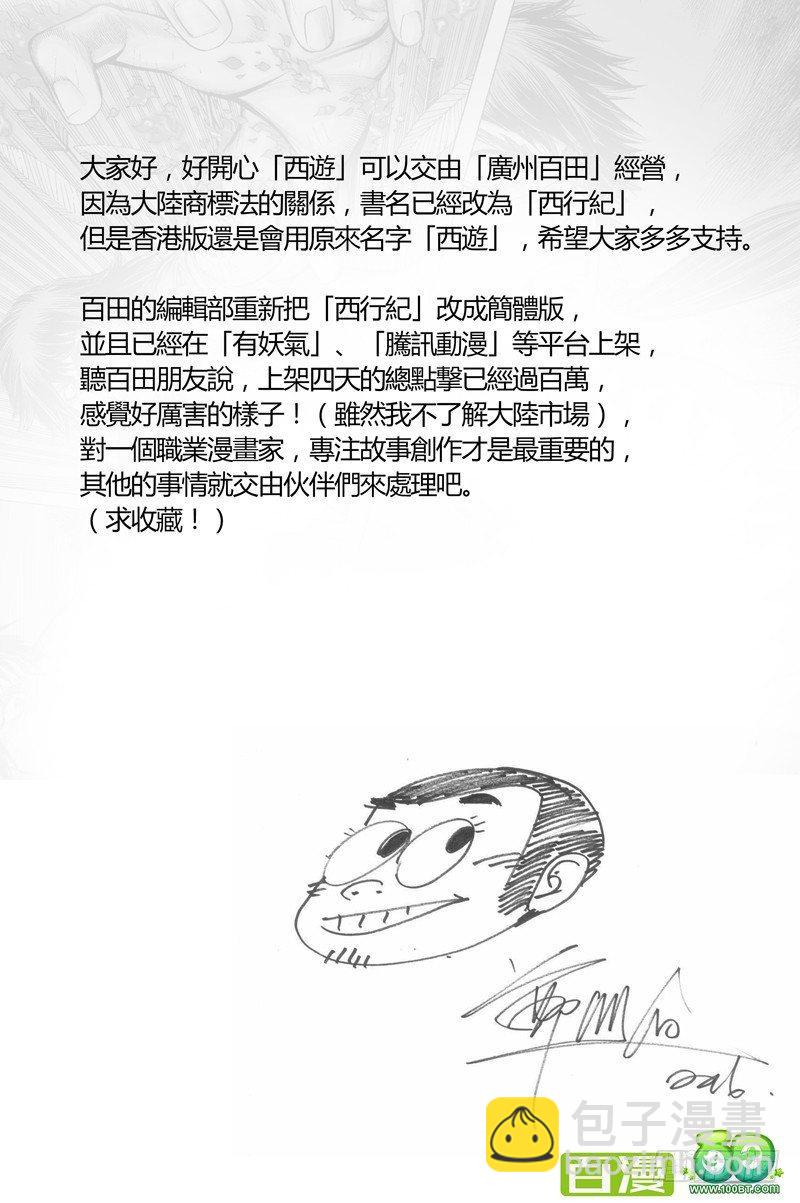 大家好，好開心「西遊」可以交由「廣州百田」經營，
因為大陸商標法的關係，書名已經改為「西行紀」，
但是香港版還是會用原來名字「西遊」，希望大家多多支持。
百田的編輯部重新把「西行紀」改成簡體版，
並且已經在「有妖氣」、「騰訊動漫」等平台上架，
聽百田朋友說，上架四天的總點擊已經過百萬，
感覺好厲害的樣子！（雖然我不了解大陸市場），
對一個職業漫畫家，專注故事創作才是最重要的，
其他的事情就交由伙伴們來處理吧。
（求收藏！）
包子漫畫
百漫
WWW.100BT.COM